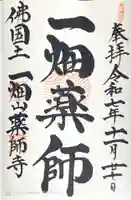 奉拝 令和七年十一月廿二日
一畑薬師
佛国土 一畑山薬師寺